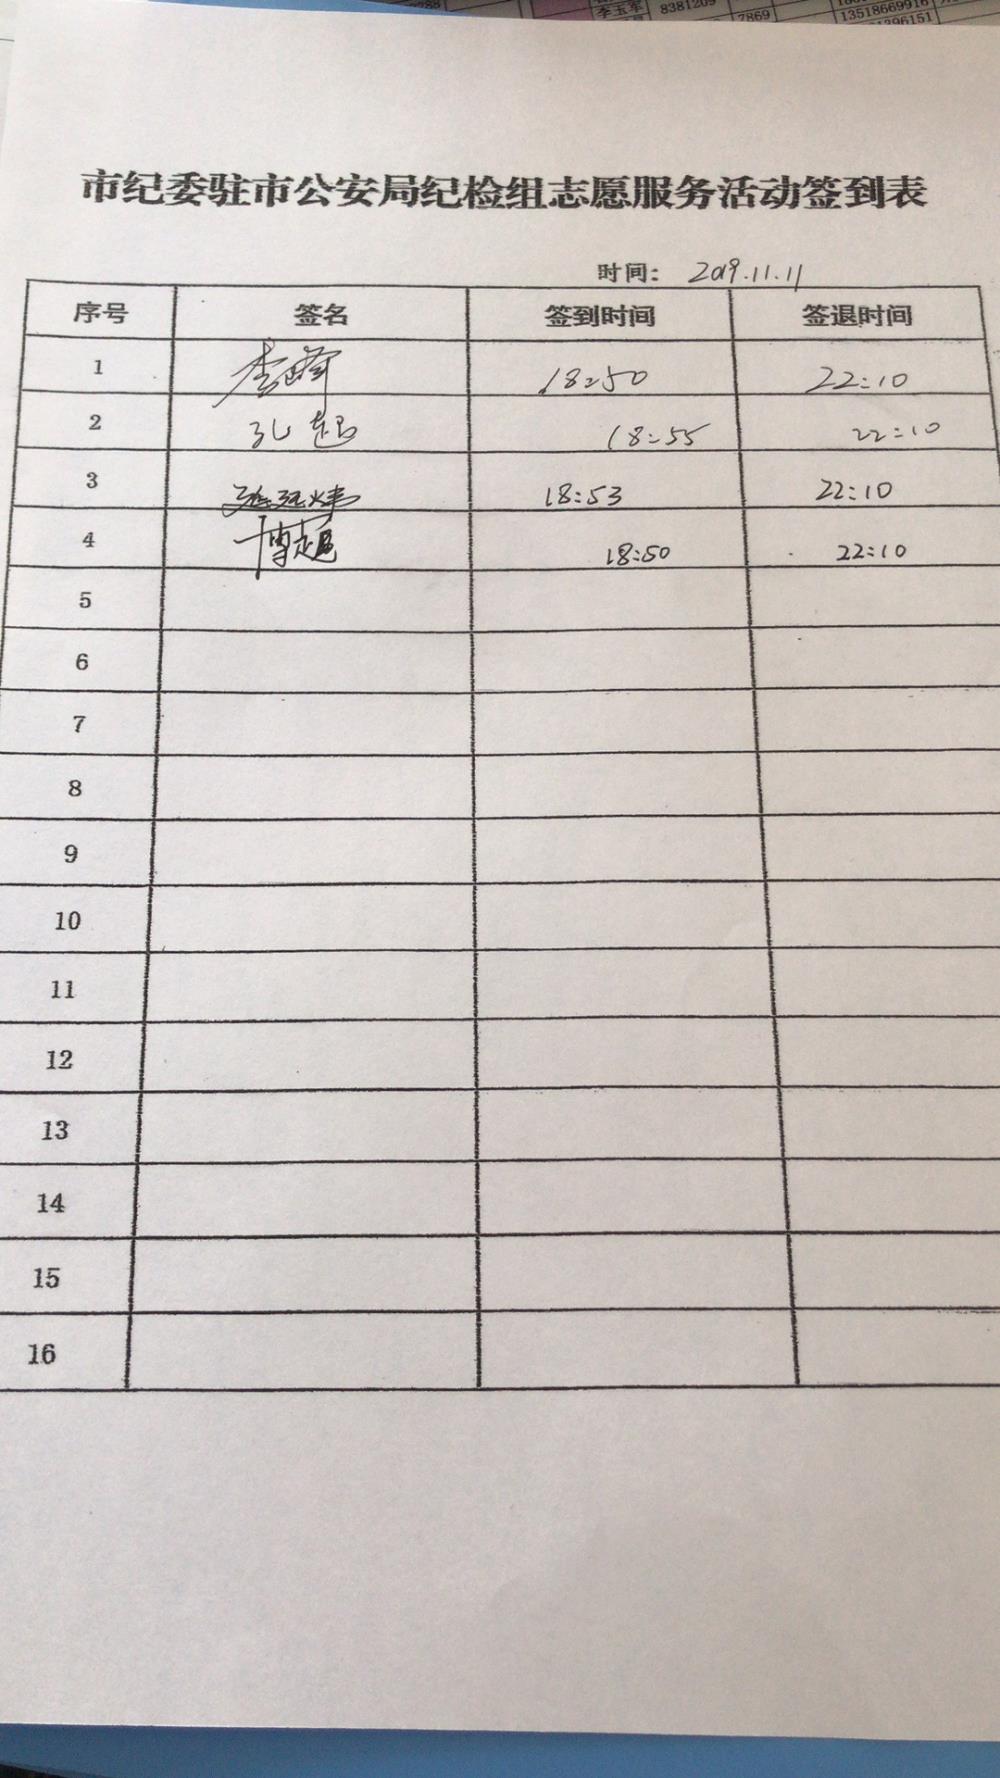 李玉军 8381209
7869
13518669916
市纪委驻市公安局纪检组志愿服务活动签到表
时间： 2019.11.11
序号 签名 签到时间 签退时间
1 18:50 22:10
2 孔超 18:55 22:10
3 18:53 22:10
4 18:50 22:10
5
6
7
8
9
10
11
12
13
14
15
16